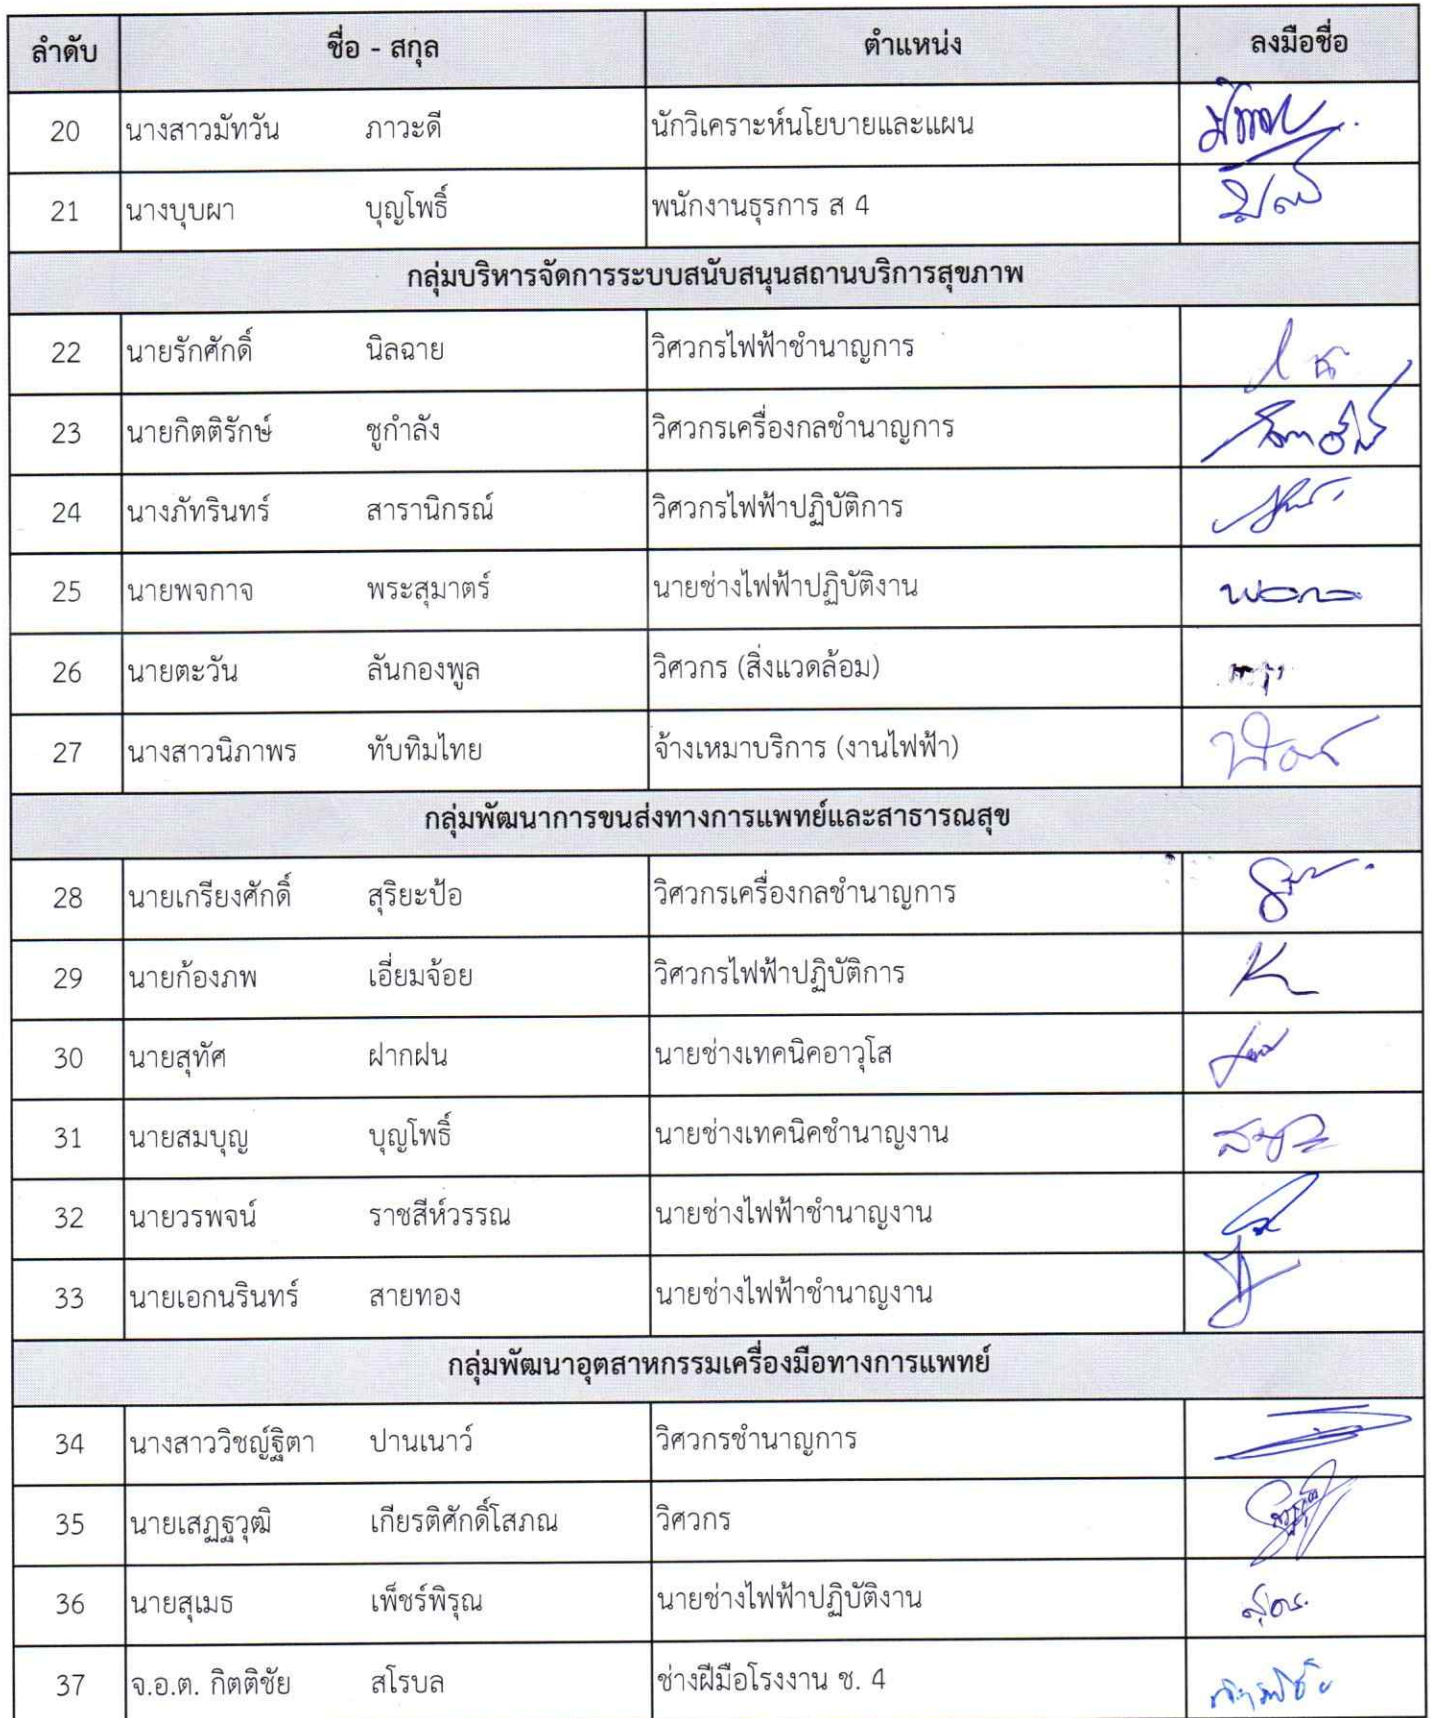 ลำดับ ชื่อ - สกุล ตำแหน่ง ลงมือชื่อ
20 นางสาวมัทวัน ภาวะดี นักวิเคราะห์นโยบายและแผน
21 นางบุบผา บุญโพธิ์ พนักงานธุรการ ส 4
กลุ่มบริหารจัดการระบบสนับสนุนสถานบริการสุขภาพ
22 นายรักศักดิ์ นิลฉาย วิศวกรไฟฟ้าชำนาญการ
23 นายกิตติรักษ์ ชูกำลัง วิศวกรเครื่องกลชำนาญการ
24 นางภัทรินทร์ สารานิกรณ์ วิศวกรไฟฟ้าปฏิบัติการ
25 นายพจกาจ พระสุมาตร์ นายช่างไฟฟ้าปฏิบัติงาน
26 นายตะวัน ลันกองพูล วิศวกร (สิ่งแวดล้อม)
27 นางสาวนิภาพร ทับทิมไทย จ้างเหมาบริการ (งานไฟฟ้า)
กลุ่มพัฒนาการขนส่งทางการแพทย์และสาธารณสุข
28 นายเกรียงศักดิ์ สุริยะป้อ วิศวกรเครื่องกลชำนาญการ
29 นายก้องภพ เอี่ยมจ้อย วิศวกรไฟฟ้าปฏิบัติการ
30 นายสุทัศ ฝากฝน นายช่างเทคนิคอาวุโส
31 นายสมบุญ บุญโพธิ์ นายช่างเทคนิคชำนาญงาน
32 นายวรพจน์ ราชสีห์วรรณ นายช่างไฟฟ้าชำนาญงาน
33 นายเอกนรินทร์ สายทอง นายช่างไฟฟ้าชำนาญงาน
กลุ่มพัฒนาอุตสาหกรรมเครื่องมือทางการแพทย์
34 นางสาววิชญ์ฐิตา ปานเนาว์ วิศวกรชำนาญการ
35 นายเสฏฐวุฒิ เกียรติศักดิ์โสภณ วิศวกร
36 นายสุเมธ เพ็ชร์พิรุณ นายช่างไฟฟ้าปฏิบัติงาน
37 จ.อ.ต. กิตติชัย สโรบล ช่างฝีมือโรงงาน ช. 4